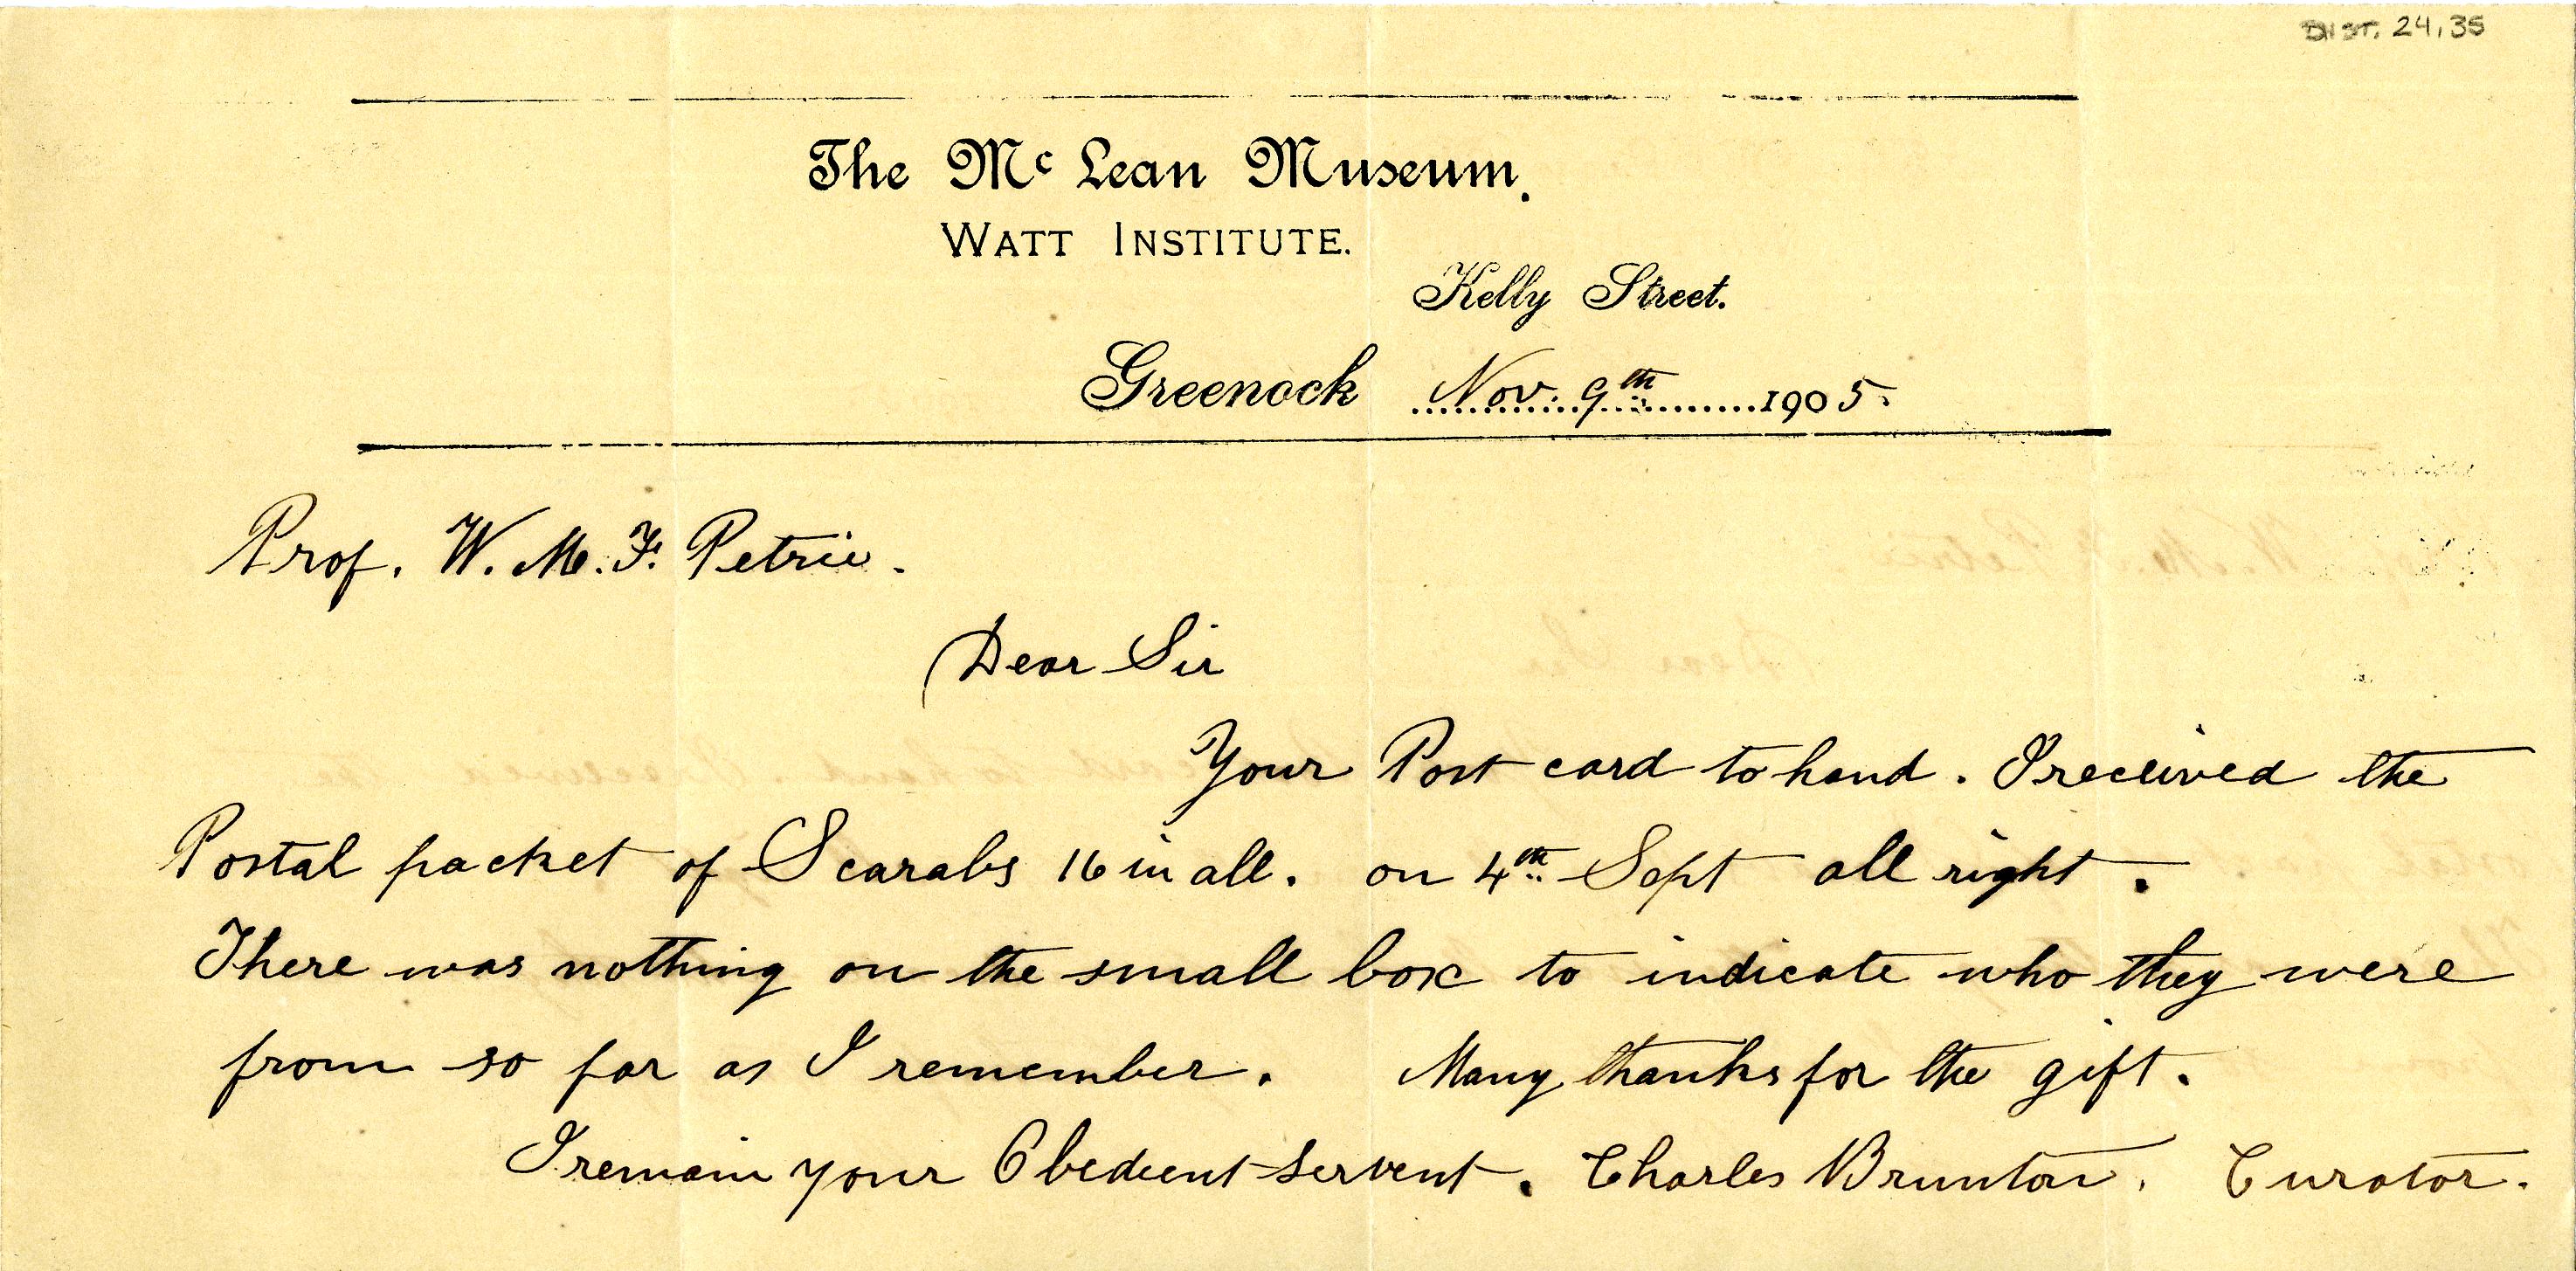 DIST. 24,35
The Mc Lean Museum.
WATT INSTITUTE.
Kelly Street.
Greenock Nov. 9th 1905.
Prof. W. M. F. Petrie.
Dear Sir
Your Post card to hand. I received the
Postal packet of Scarabs 16 in all. on 4th Sept all right.
There was nothing on the small box to indicate who they were
from so far as I remember. Many thanks for the gift.
I remain your Obedient servent. Charles Brunton. Curator.